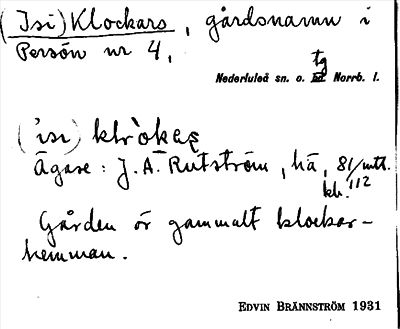 (Isi) Klockars, gårdsnamn i
Persön nr 4,
tg
Nederluleå sn. o. Norrb. l.
('isi) klr`okaʂ
Ägare: J. A. Rutström, hä, 81/mtl.
kh. 112
Gården är gammalt klockar-
hemman.
EDVIN BRÄNNSTRÖM 1931